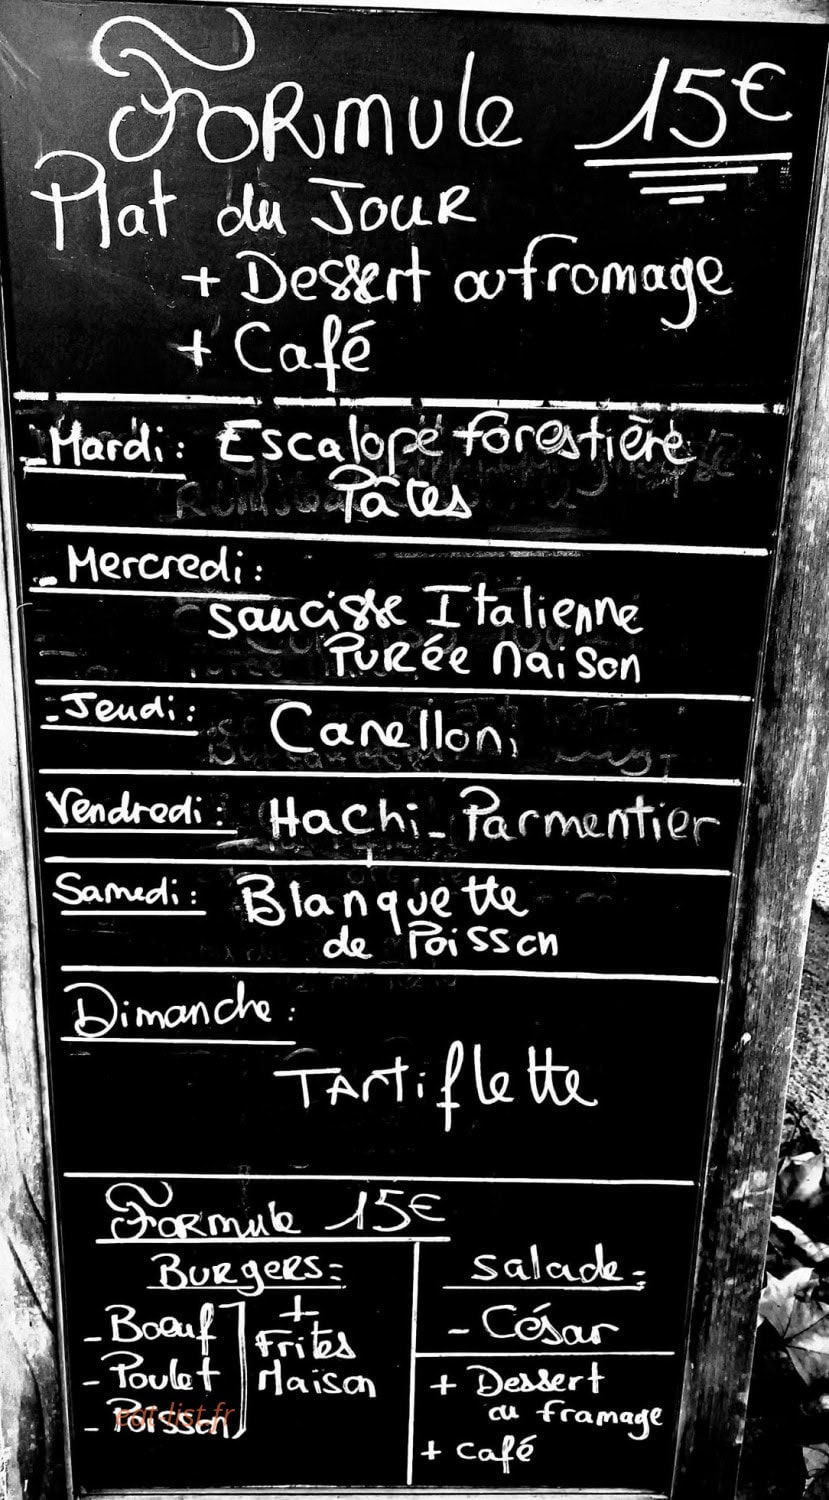 Formule 15€
Plat du Jour
+ Dessert ou fromage
+ Café
- Mardi : Escalope forestière
Pâtes
- Mercredi :
Saucisse Italienne
Purée Maison
- Jeudi : Canelloni
Vendredi : Hachi-Parmentier
Samedi : Blanquette
de Poisson
Dimanche :
Tartiflette
Formule 15€
Burgers :
- Boeuf
- Poulet
- Poisson
+
Frites
Maison
Salade :
- César
+ Dessert
ou framage
+ Café
eat-list.fr